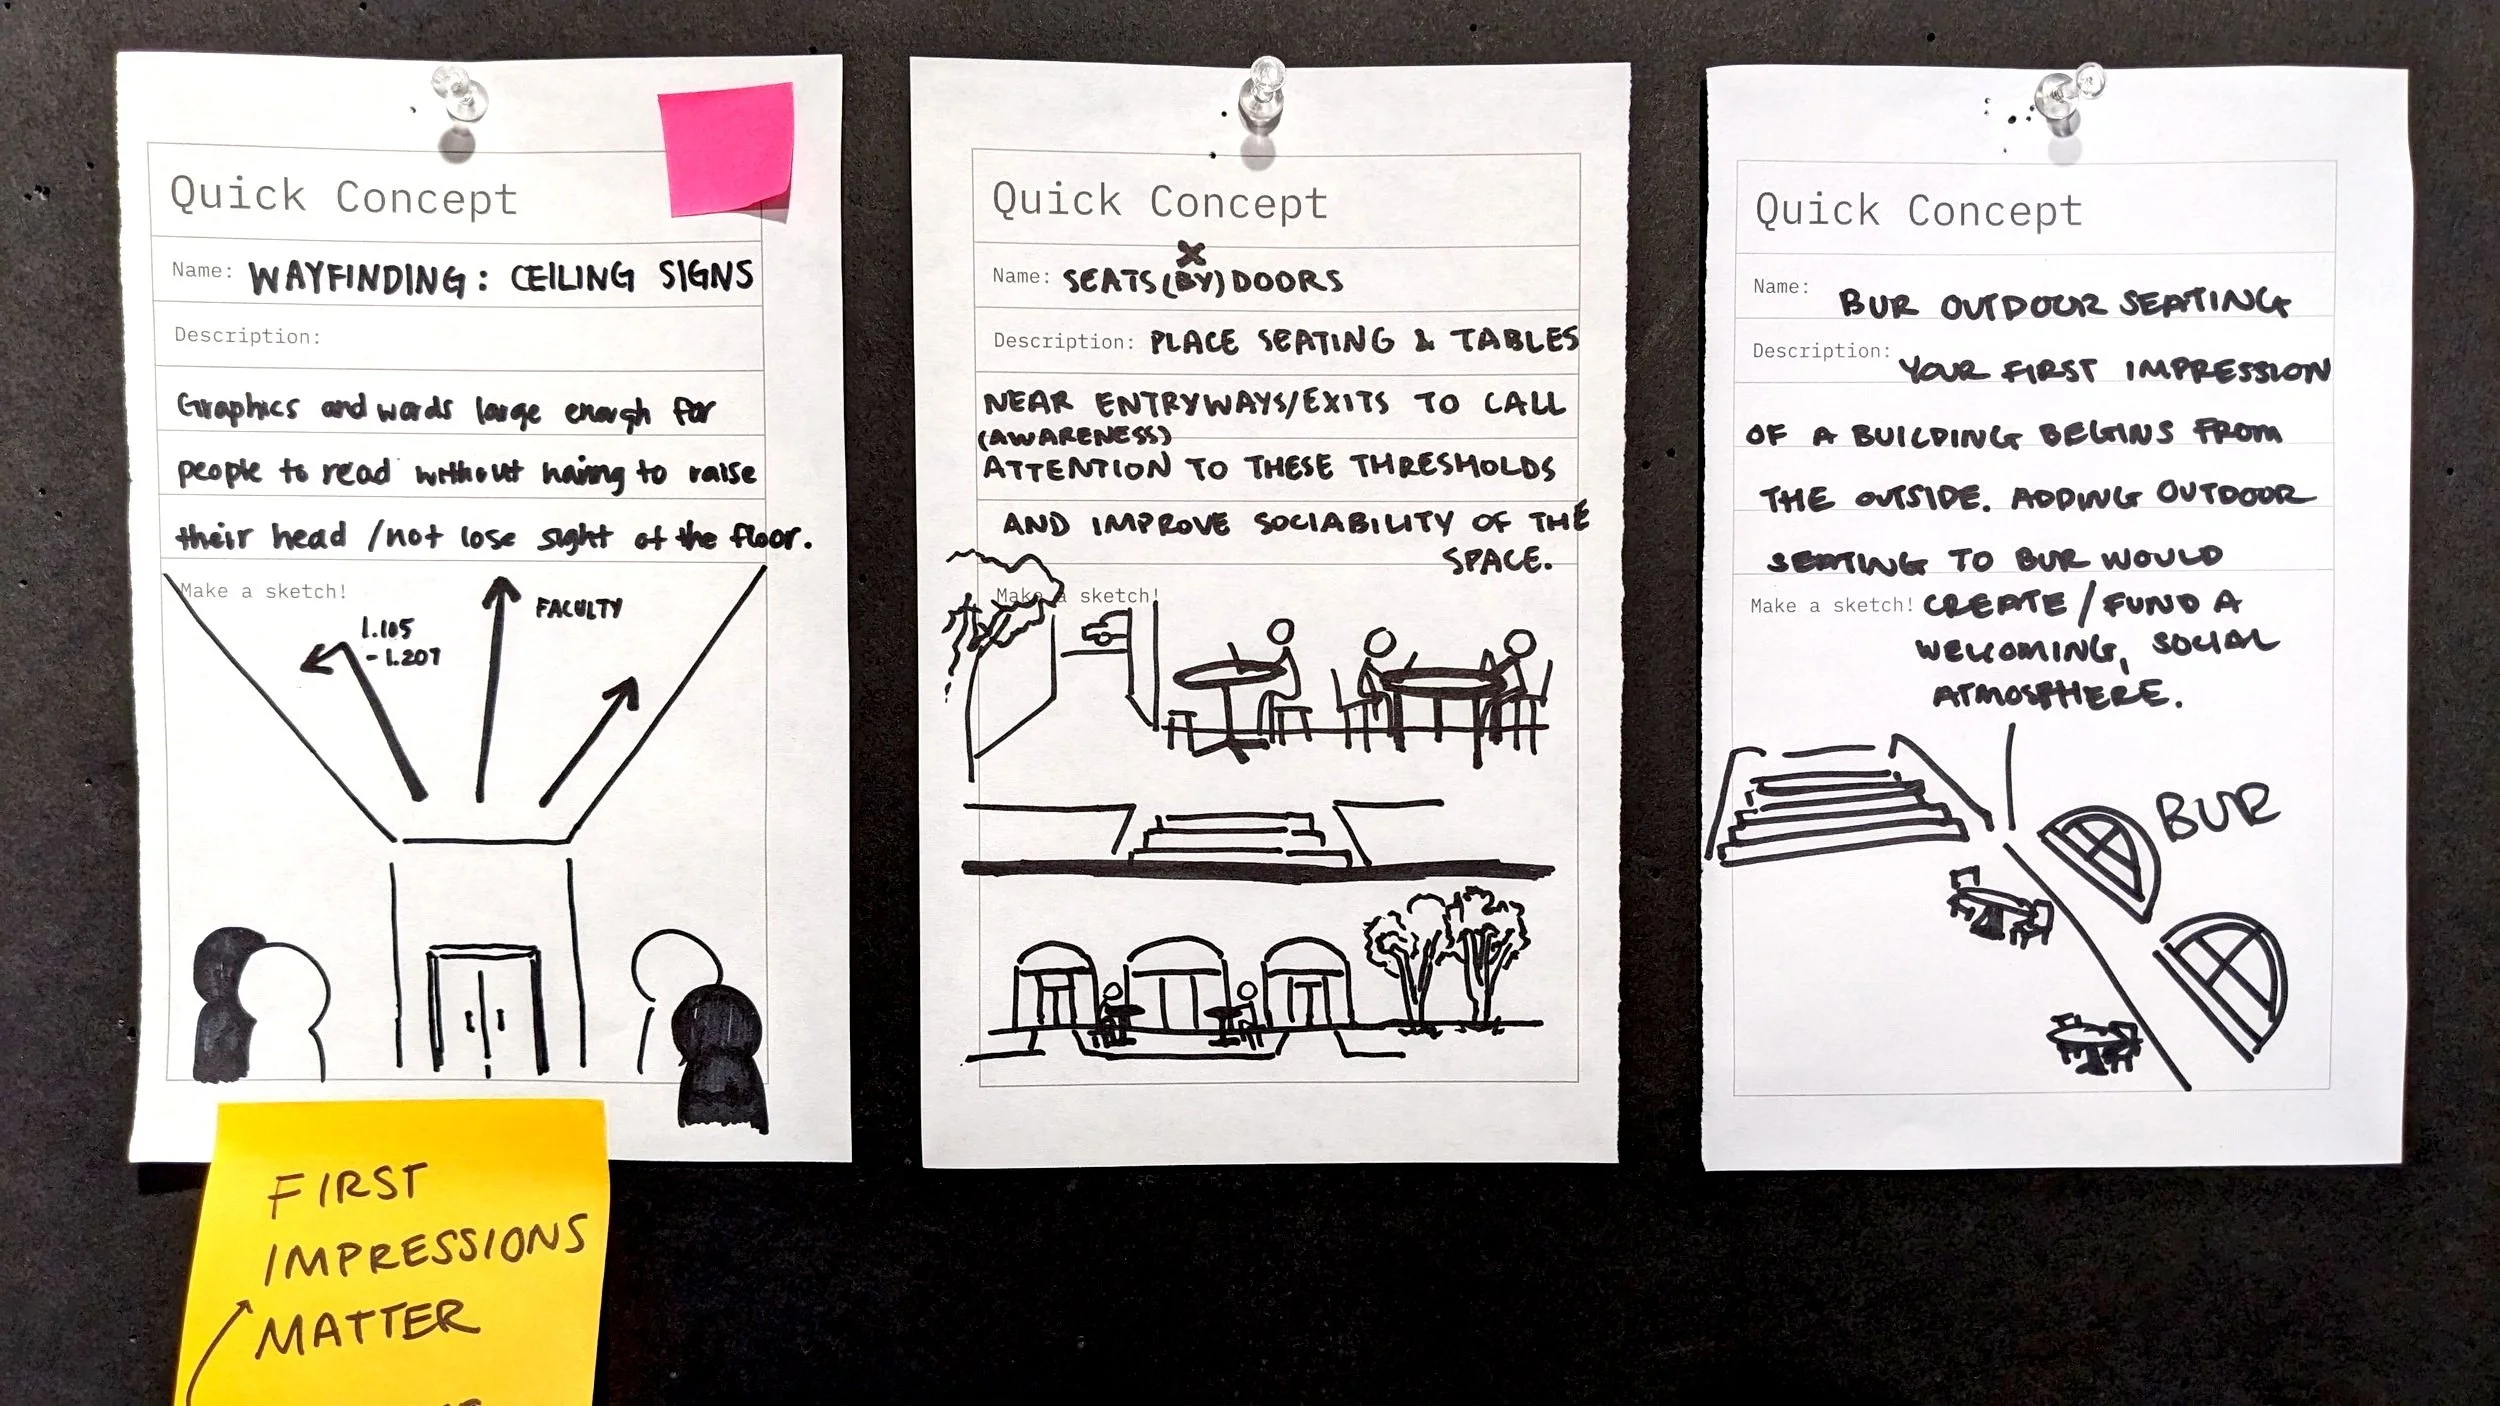 Quick Concept
Name: WAYFINDING: CEILING SIGNS
Description:
Graphics and words large enough for
people to read without having to raise
their head /not lose sight of the floor.
Make a sketch!
1.105
-1.207
FACULTY
FIRST
IMPRESSIONS
MATTER
Quick Concept
x
Name: SEATS(BY)DOORS
Description: PLACE SEATING & TABLES
NEAR ENTRYWAYS/EXITS TO CALL
(AWARENESS)
ATTENTION TO THESE THRESHOLDS
AND IMPROVE SOCIABILITY OF THE
SPACE.
Make a sketch!
Quick Concept
Name: BUR OUTDOOR SEATING
Description: YOUR FIRST IMPRESSION
OF A BUILDING BEGINS FROM
THE OUTSIDE. ADDING OUTDOOR
SEATING TO BUR WOULD
Make a sketch! CREATE/FUND A
WELCOMING, SOCIAL
ATMOSPHERE.
BUR